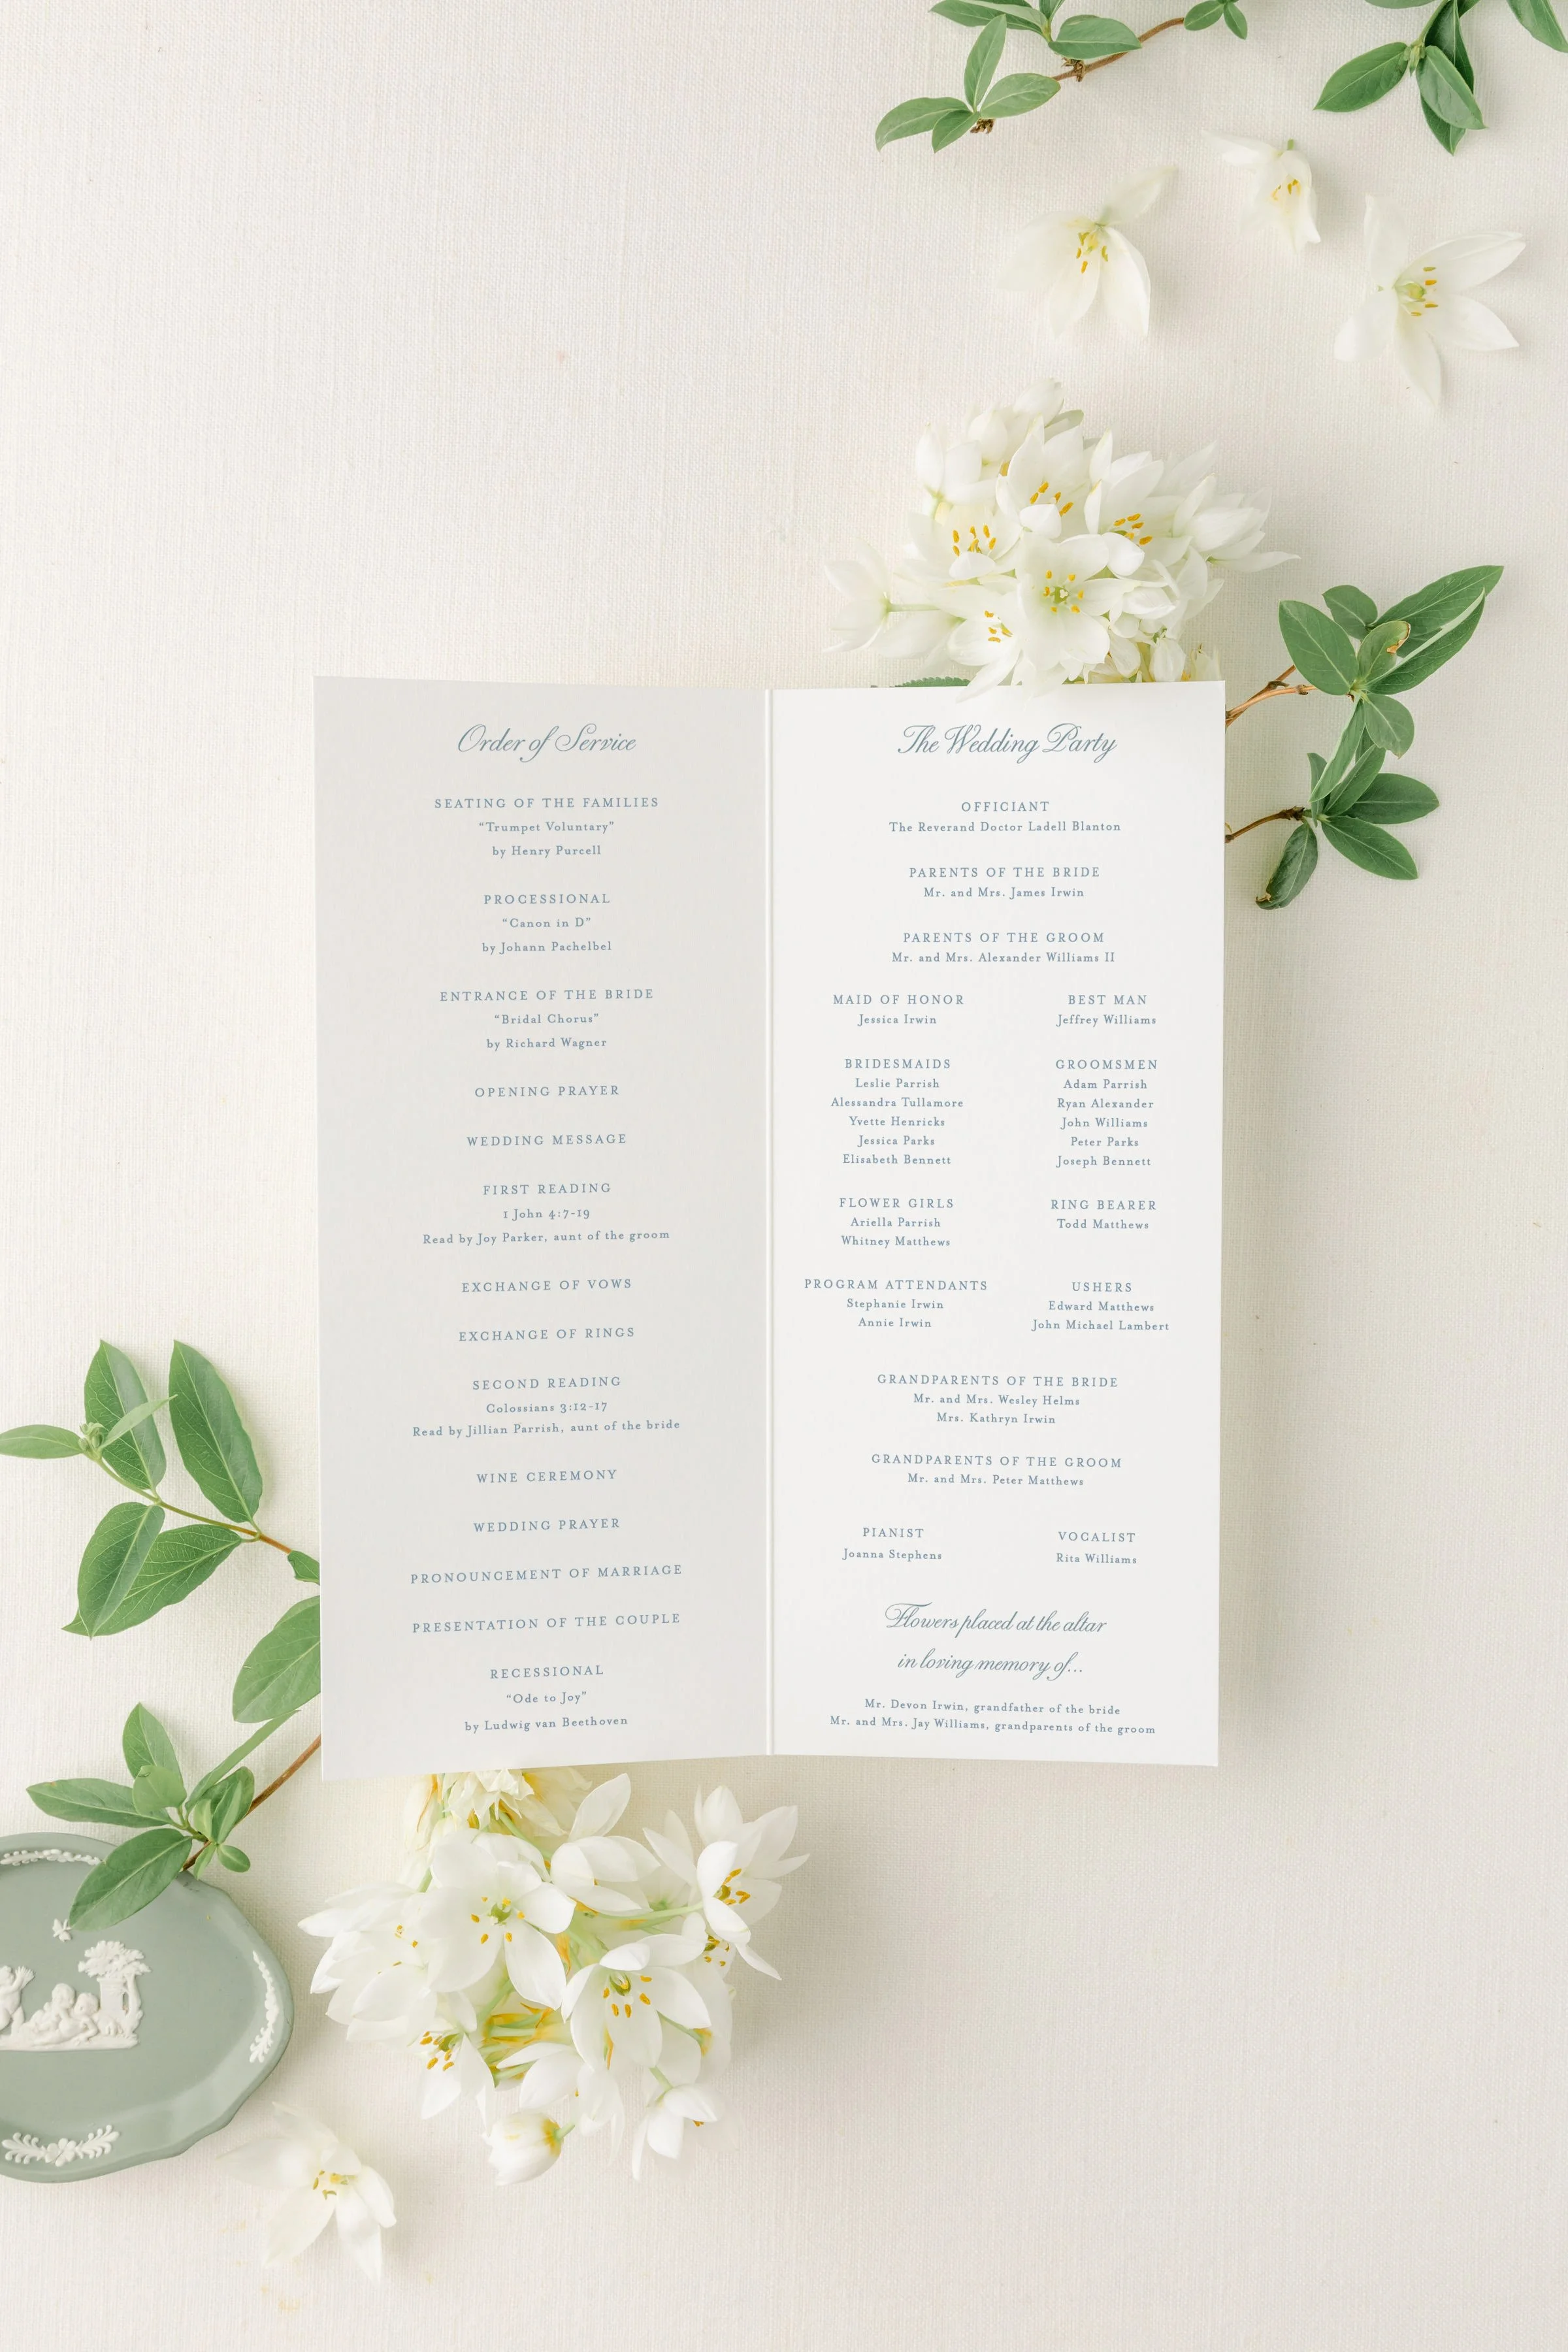 Order of Service
SEATING OF THE FAMILIES
“Trumpet Voluntary”
by Henry Purcell
PROCESSIONAL
“Canon in D”
by Johann Pachelbel
ENTRANCE OF THE BRIDE
“Bridal Chorus”
by Richard Wagner
OPENING PRAYER
WEDDING MESSAGE
FIRST READING
1 John 4:7-19
Read by Joy Parker, aunt of the groom
EXCHANGE OF VOWS
EXCHANGE OF RINGS
SECOND READING
Colossians 3:12-17
Read by Jillian Parrish, aunt of the bride
WINE CEREMONY
WEDDING PRAYER
PRONOUNCEMENT OF MARRIAGE
PRESENTATION OF THE COUPLE
RECESSIONAL
“Ode to Joy”
by Ludwig van Beethoven
The Wedding Party
OFFICIANT
The Reverand Doctor Ladell Blanton
PARENTS OF THE BRIDE
Mr. and Mrs. James Irwin
PARENTS OF THE GROOM
Mr. and Mrs. Alexander Williams II
MAID OF HONOR
Jessica Irwin
BEST MAN
Jeffrey Williams
BRIDESMAIDS
Leslie Parrish
Alessandra Tullamore
Yvette Henricks
Jessica Parks
Elisabeth Bennett
GROOMSMEN
Adam Parrish
Ryan Alexander
John Williams
Peter Parks
Joseph Bennett
FLOWER GIRLS
Ariella Parrish
Whitney Matthews
RING BEARER
Todd Matthews
PROGRAM ATTENDANTS
Stephanie Irwin
Annie Irwin
USHERS
Edward Matthews
John Michael Lambert
GRANDPARENTS OF THE BRIDE
Mr. and Mrs. Wesley Helms
Mrs. Kathryn Irwin
GRANDPARENTS OF THE GROOM
Mr. and Mrs. Peter Matthews
PIANIST
Joanna Stephens
VOCALIST
Rita Williams
Flowers placed at the altar
in loving memory of...
Mr. Devon Irwin, grandfather of the bride
Mr. and Mrs. Jay Williams, grandparents of the groom